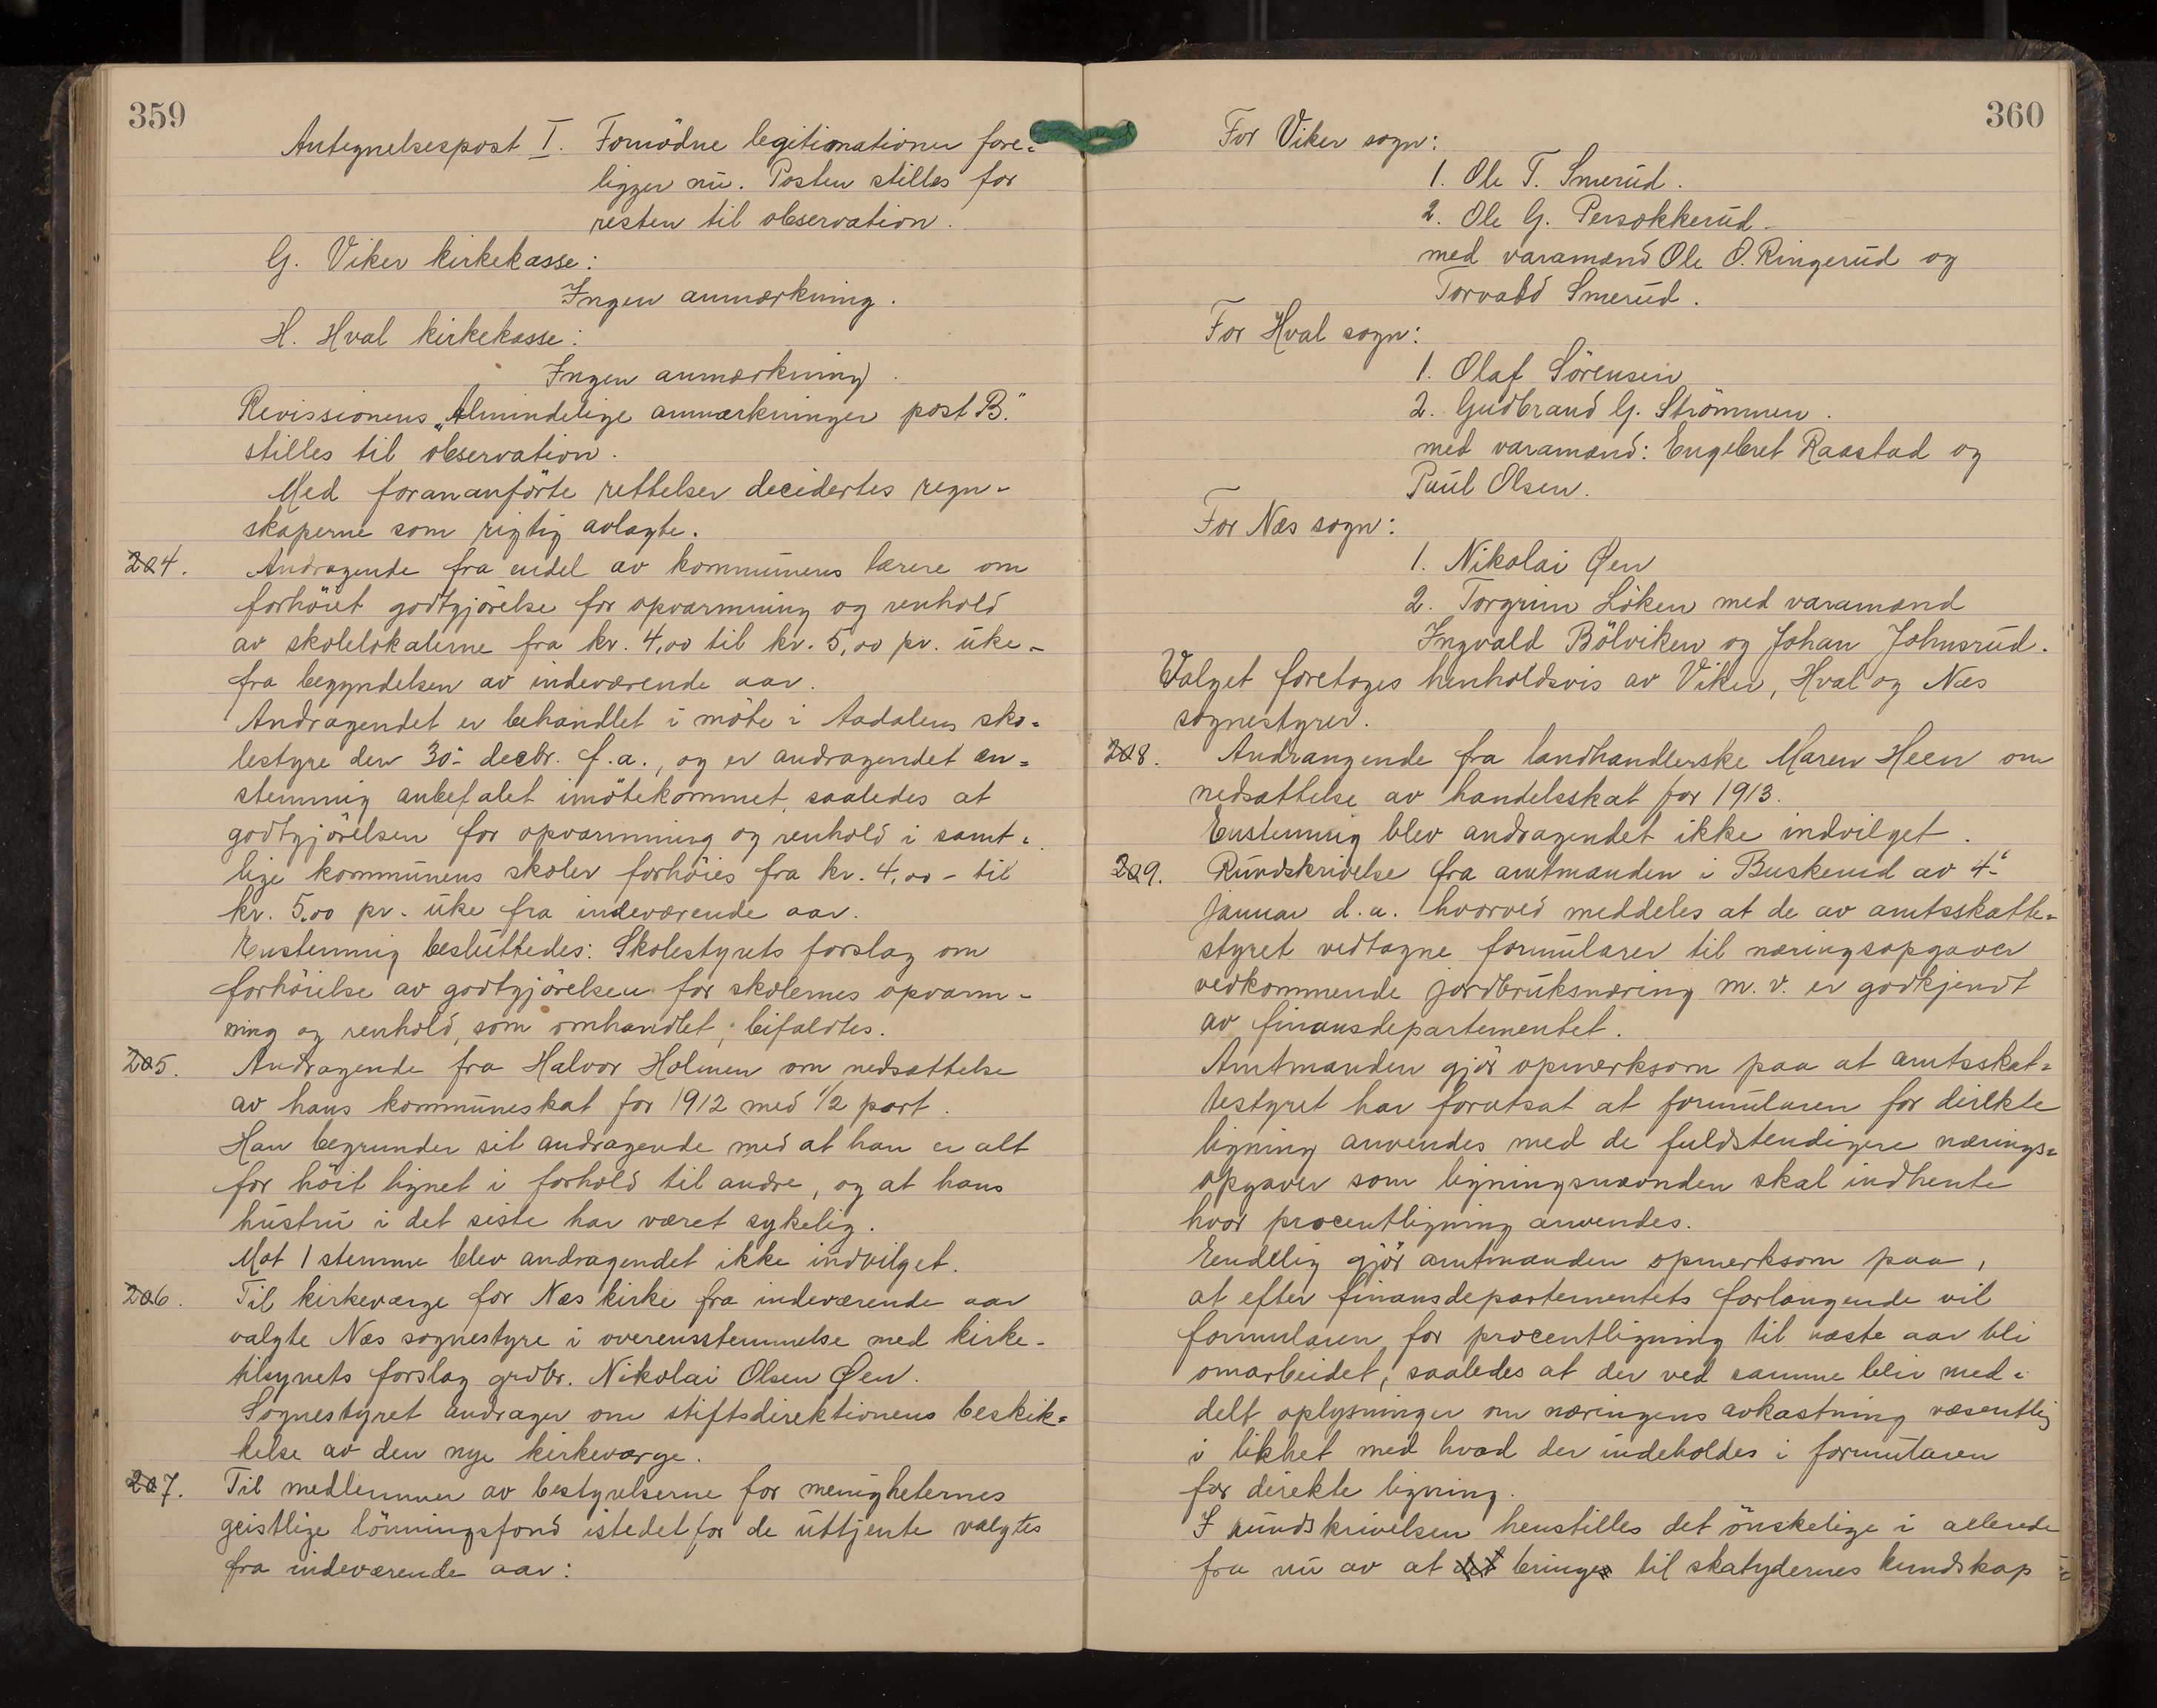 359
Antegnelsespost I. Fornödne legitimationer fore=
ligger nu. Posten stilles for
resten til observation.
G. Viker kirkekasse:
Ingen anmærkning.
H. Hval kirkekasse:
Ingen anmærkning.
Revissionens „Almindelige anmærkninger post B."
stilles til observation.
Med forananförte rettelser decidertes regn-
skaperne som rigtig avlagte.
204. Andragende fra endel av kommunens lærere om
forhöiet godtgjörelse for opvarmning og renhold
av skolelokalerne fra kr. 4,00 til kr. 5,00 pr. uke -
fra begyndelsen av indeværende aar.
Andragendet er behandlet i möte i Aadalens sko=
lestyre den 30- decbr. f.a., og er andragendet en=
stemmig anbefalet imötekommet saaledes at
godtgjörelsen for opvarmning og renhold i samt=
lige kommunens skoler forhöies fra kr. 4,00 - til
kr. 5,00 pr. uke fra indeværende aar.
Enstemmig besluttedes: Skolestyrets forslag om
forhöielse av godtgjörelsen for skolernes opvarm-
ning og renhold, som omhandlet, bifaldtes.
205. Andragende fra Halvor Holmen om nedsættelse
av hans kommuneskat for 1912 med 1/2 part.
Han begrunder sit andragende med at han er alt
for höit lignet i forhold til andre, og at hans
hustru i det siste har været sykelig.
Mot 1 stemme blev andragendet ikke indvilget.
206. Til kirkeværge for Næs kirke fra indeværende aar
valgte Næs sognestyre i overensstemmelse med kirke-
tilsynets forslag grdbr. Nikolai Olsen Øen.
Sognestyret andrager om stiftsdirektionens beskik=
kelse av den nye kirkeværge.
207. Til medlemmer av bestyrelserne for menigheternes
geistlige lönningsfond istedetfor de uttjente valgtes
fra indeværende aar:
360
For Viker sogn:
1. Ole T. Smerud.
2. Ole G. Persokkerud.
med varamænd Ole O. Ringerud og
Torvald Smerud.
For Hval sogn:
1. Olaf Sörensen
2. Gudbrand G. Strömmen.
med varamænd: Engebret Raastad og
Paul Olsen.
For Næs sogn:
1. Nikolai Øen
2. Torgrim Löken med varamænd
Ingvald Bölviken og Johan Johnsrud.
Valget foretoges henholdsvis av Viker, Hval og Næs
sognestyrer.
208. Andrangende fra landhandlerske Maren Heen om
nedsættelse av handelsskat for 1913.
Enstemmig blev andragendet ikke indvilget.
209. Rundskrivelse fra amtmanden i Buskerud av 4-
januar d.a. hvorved meddeles at de av amtsskatte=
styret vedtagne formularer til næringsopgaver
vedkommende jordbruksnæring m.v. er godkjendt
av finansdepartementet.
Amtmanden gjör opmerksom paa at amtsskat=
testyret har forutsat at formularen for direkte
ligning anvendes med de fuldstendigere nærings=
opgaver som ligningsnævnden skal indhente
hvor procentligning anvendes.
Eendelig gjör amtmanden opmerksom paa,
at efter finansdepartementets forlangende vil
formularen for procentligning til næste aar bli
omarbeidet, saaledes at der ved samme blir med=
delt oplysninger om næringens avkastning væsentlig
i likhet med hvad der indeholdes i formularen
for direkte ligning.
I rundskrivelsen henstilles det önskelige i allerede
fra nu av at det bringe til skatydernes kundskap